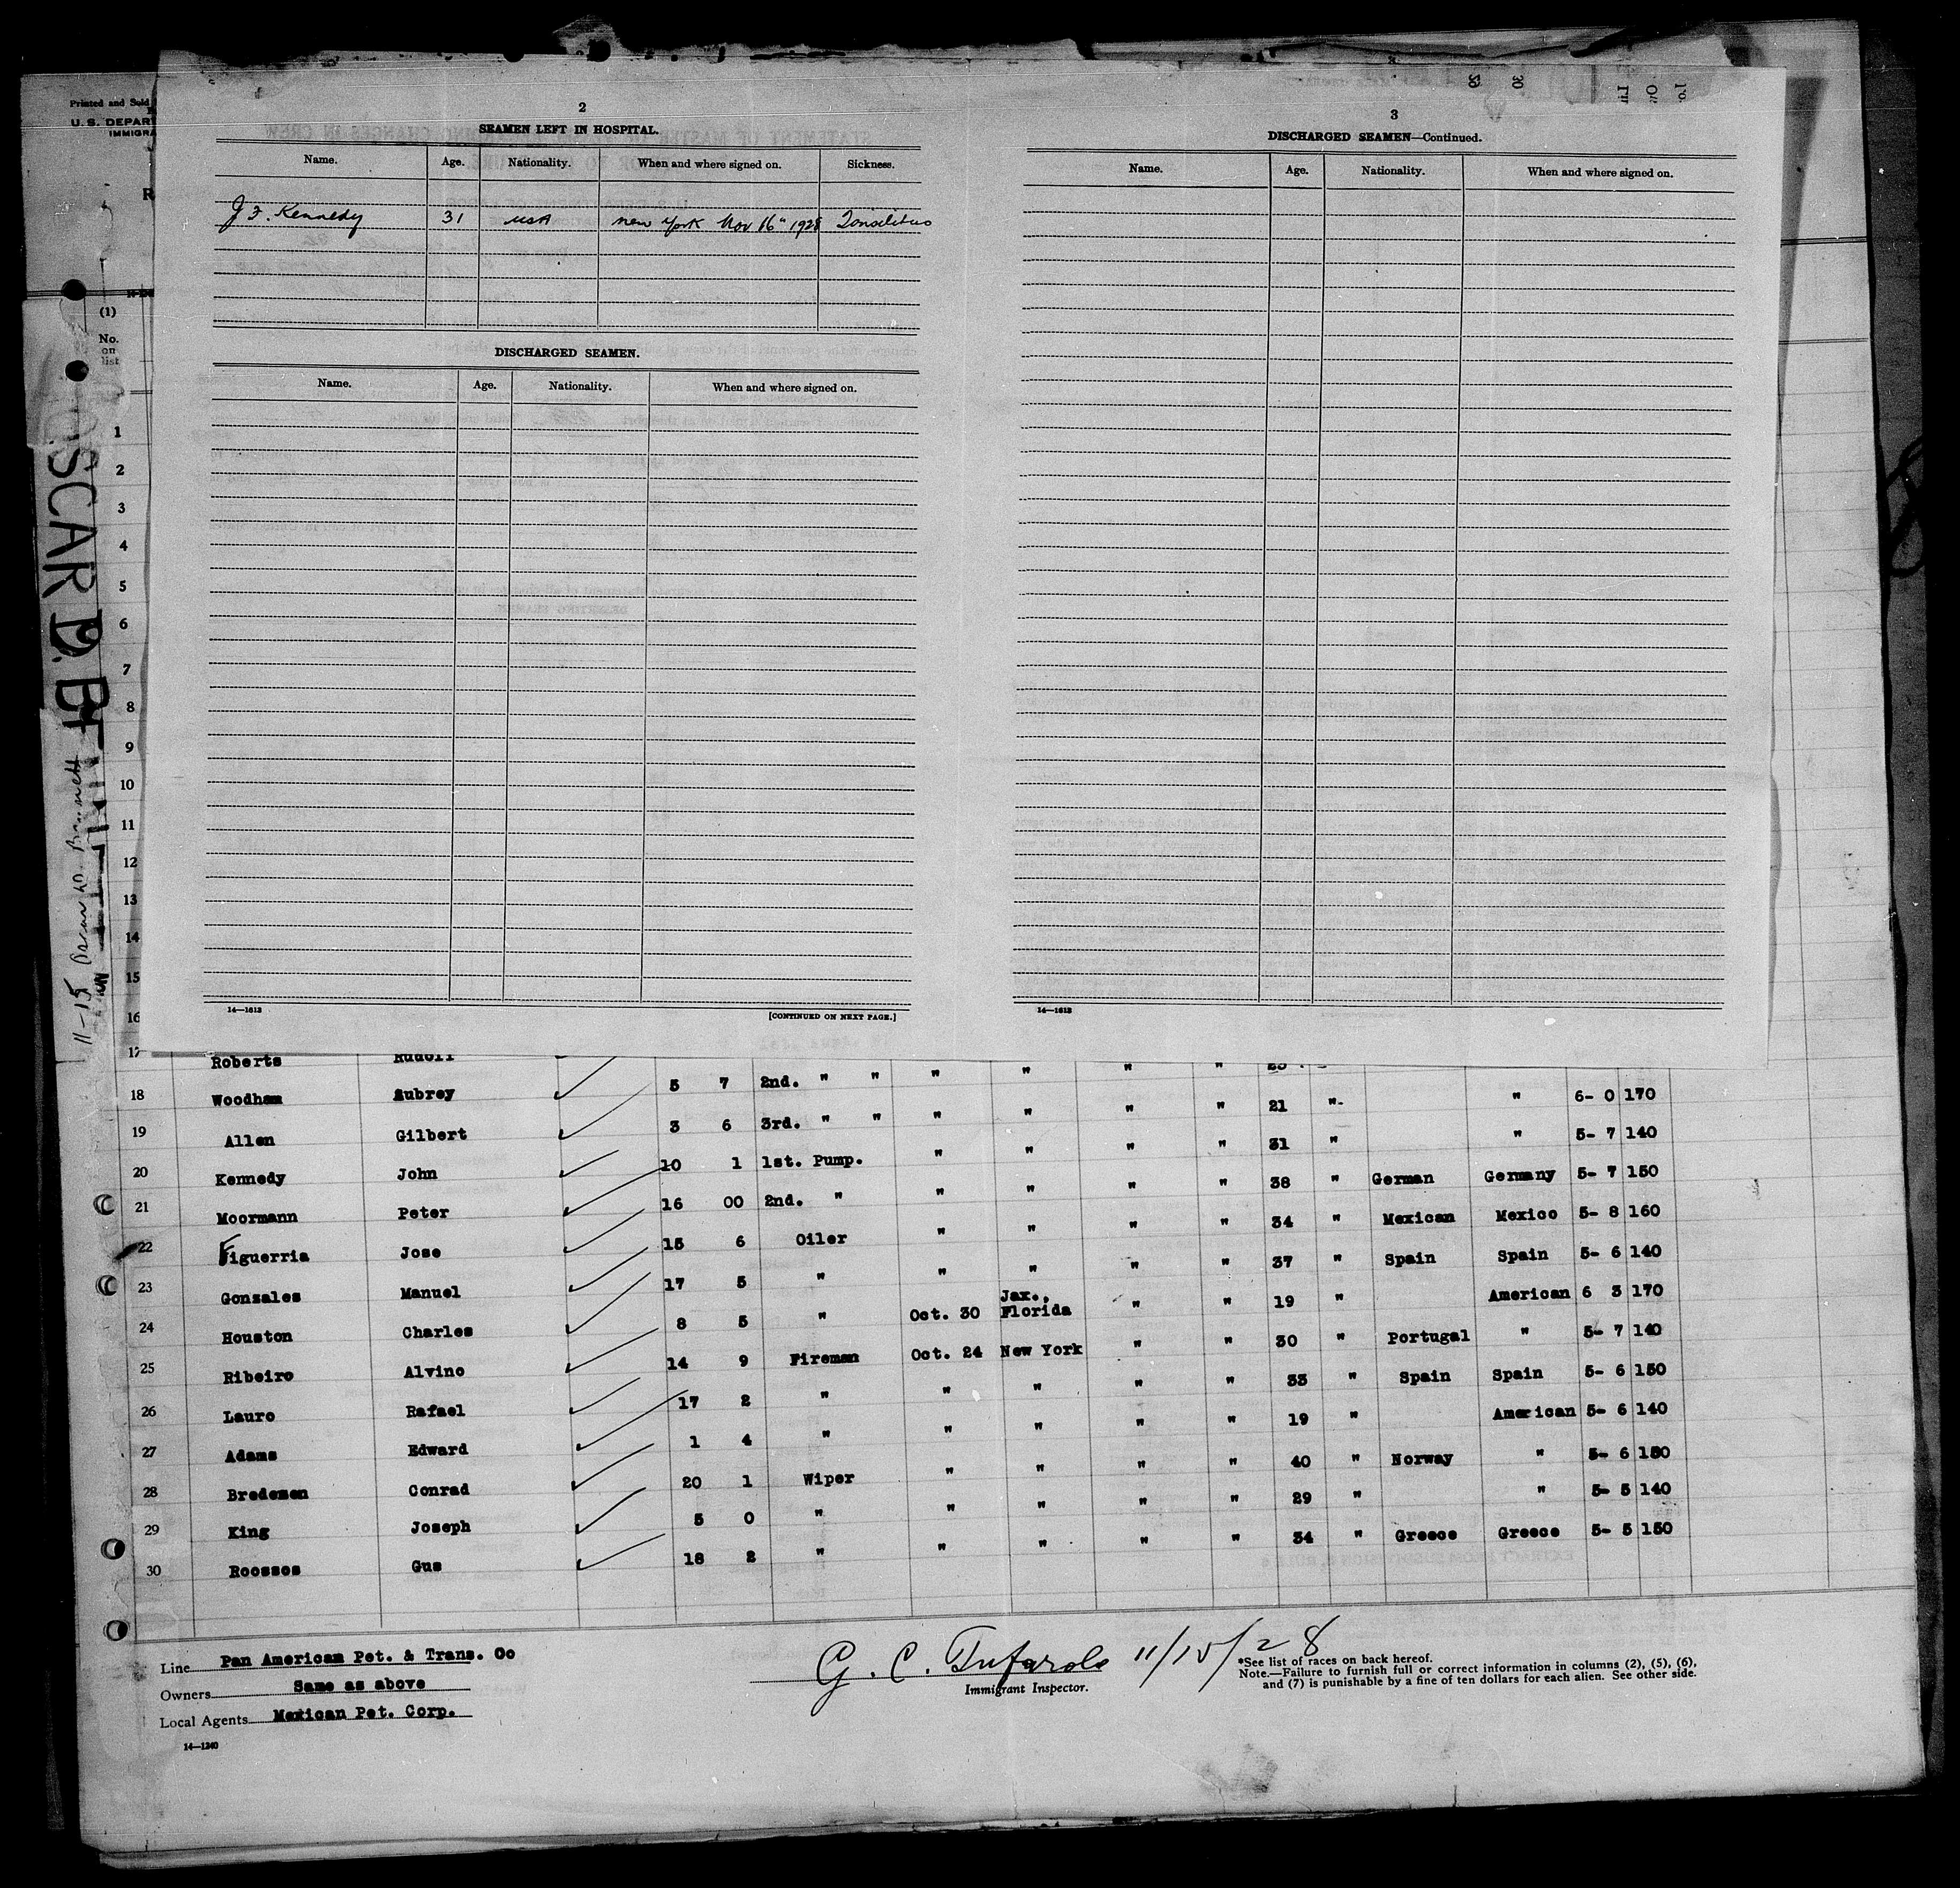 Printed and Sold
U. S. DEPAR
IMMIGRA
R
(1)
No.
on
list
OSCAR D. BENNETT
11-15 Oscar D. Bennett
2
SEAMEN LEFT IN HOSPITAL.
Name. Age. Nationality. When and where signed on. Sickness.
J F. Kennedy 31 USA new york Nov 16" 1928 Tonselitus
DISCHARGED SEAMEN.
Name. Age. Nationality. When and where signed on.
14—1613 [CONTINUED ON NEXT PAGE.]
3
DISCHARGED SEAMEN—Continued.
Name. Age. Nationality. When and where signed on.
14—1613
1
2
3
4
5
6
7
8
9
10
11
12
13
14
15
16
17 Roberts Rudolf 5 7 2nd. " " " " " " 23
18 Woodham Aubrey 3 6 3rd. " " " " " " 21 " " 6- 0 170
19 Allen Gilbert 10 1 1st. Pump. " " " " 31 " " 5- 7 140
20 Kennedy John 16 00 2nd. " " " " " 38 " German Germany 5- 7 150
21 Moormann Peter 15 6 Oiler " " " " 34 " Mexican Mexico 5- 8 160
22 Figuerria Jose 17 5 " " " " " 37 " Spain Spain 5- 6 140
23 Gonzales Manuel 8 5 " Oct. 30 Jax., Florida " " 19 " American 6 3 170
24 Houston Charles 14 9 Fireman Oct. 24 New York " " 30 " Portugal " 5- 7 140
25 Ribeiro Alvino 17 2 " " " " " 33 " Spain Spain 5- 6 150
26 Lauro Rafael 1 4 " " " " " 19 " American 5- 6 140
27 Adams Edward 20 1 Wiper " " " " 40 " Norway " 5- 6 150
28 Bredesen Conrad 5 0 " " " " " 29 " " 5- 5 140
29 King Joseph 18 2 " " " " " 34 " Greece Greece 5- 5 150
30 Roosses Gus
Line Pan American Pet. & Trans. Co
Owners Same as above
Local Agents Mexican Pet. Corp.
14—1240
G. C. Tufarolo 11/15/28
Immigrant Inspector.
*See list of races on back hereof.
Note.—Failure to furnish full or correct information in columns (2), (5), (6),
and (7) is punishable by a fine of ten dollars for each alien. See other side.